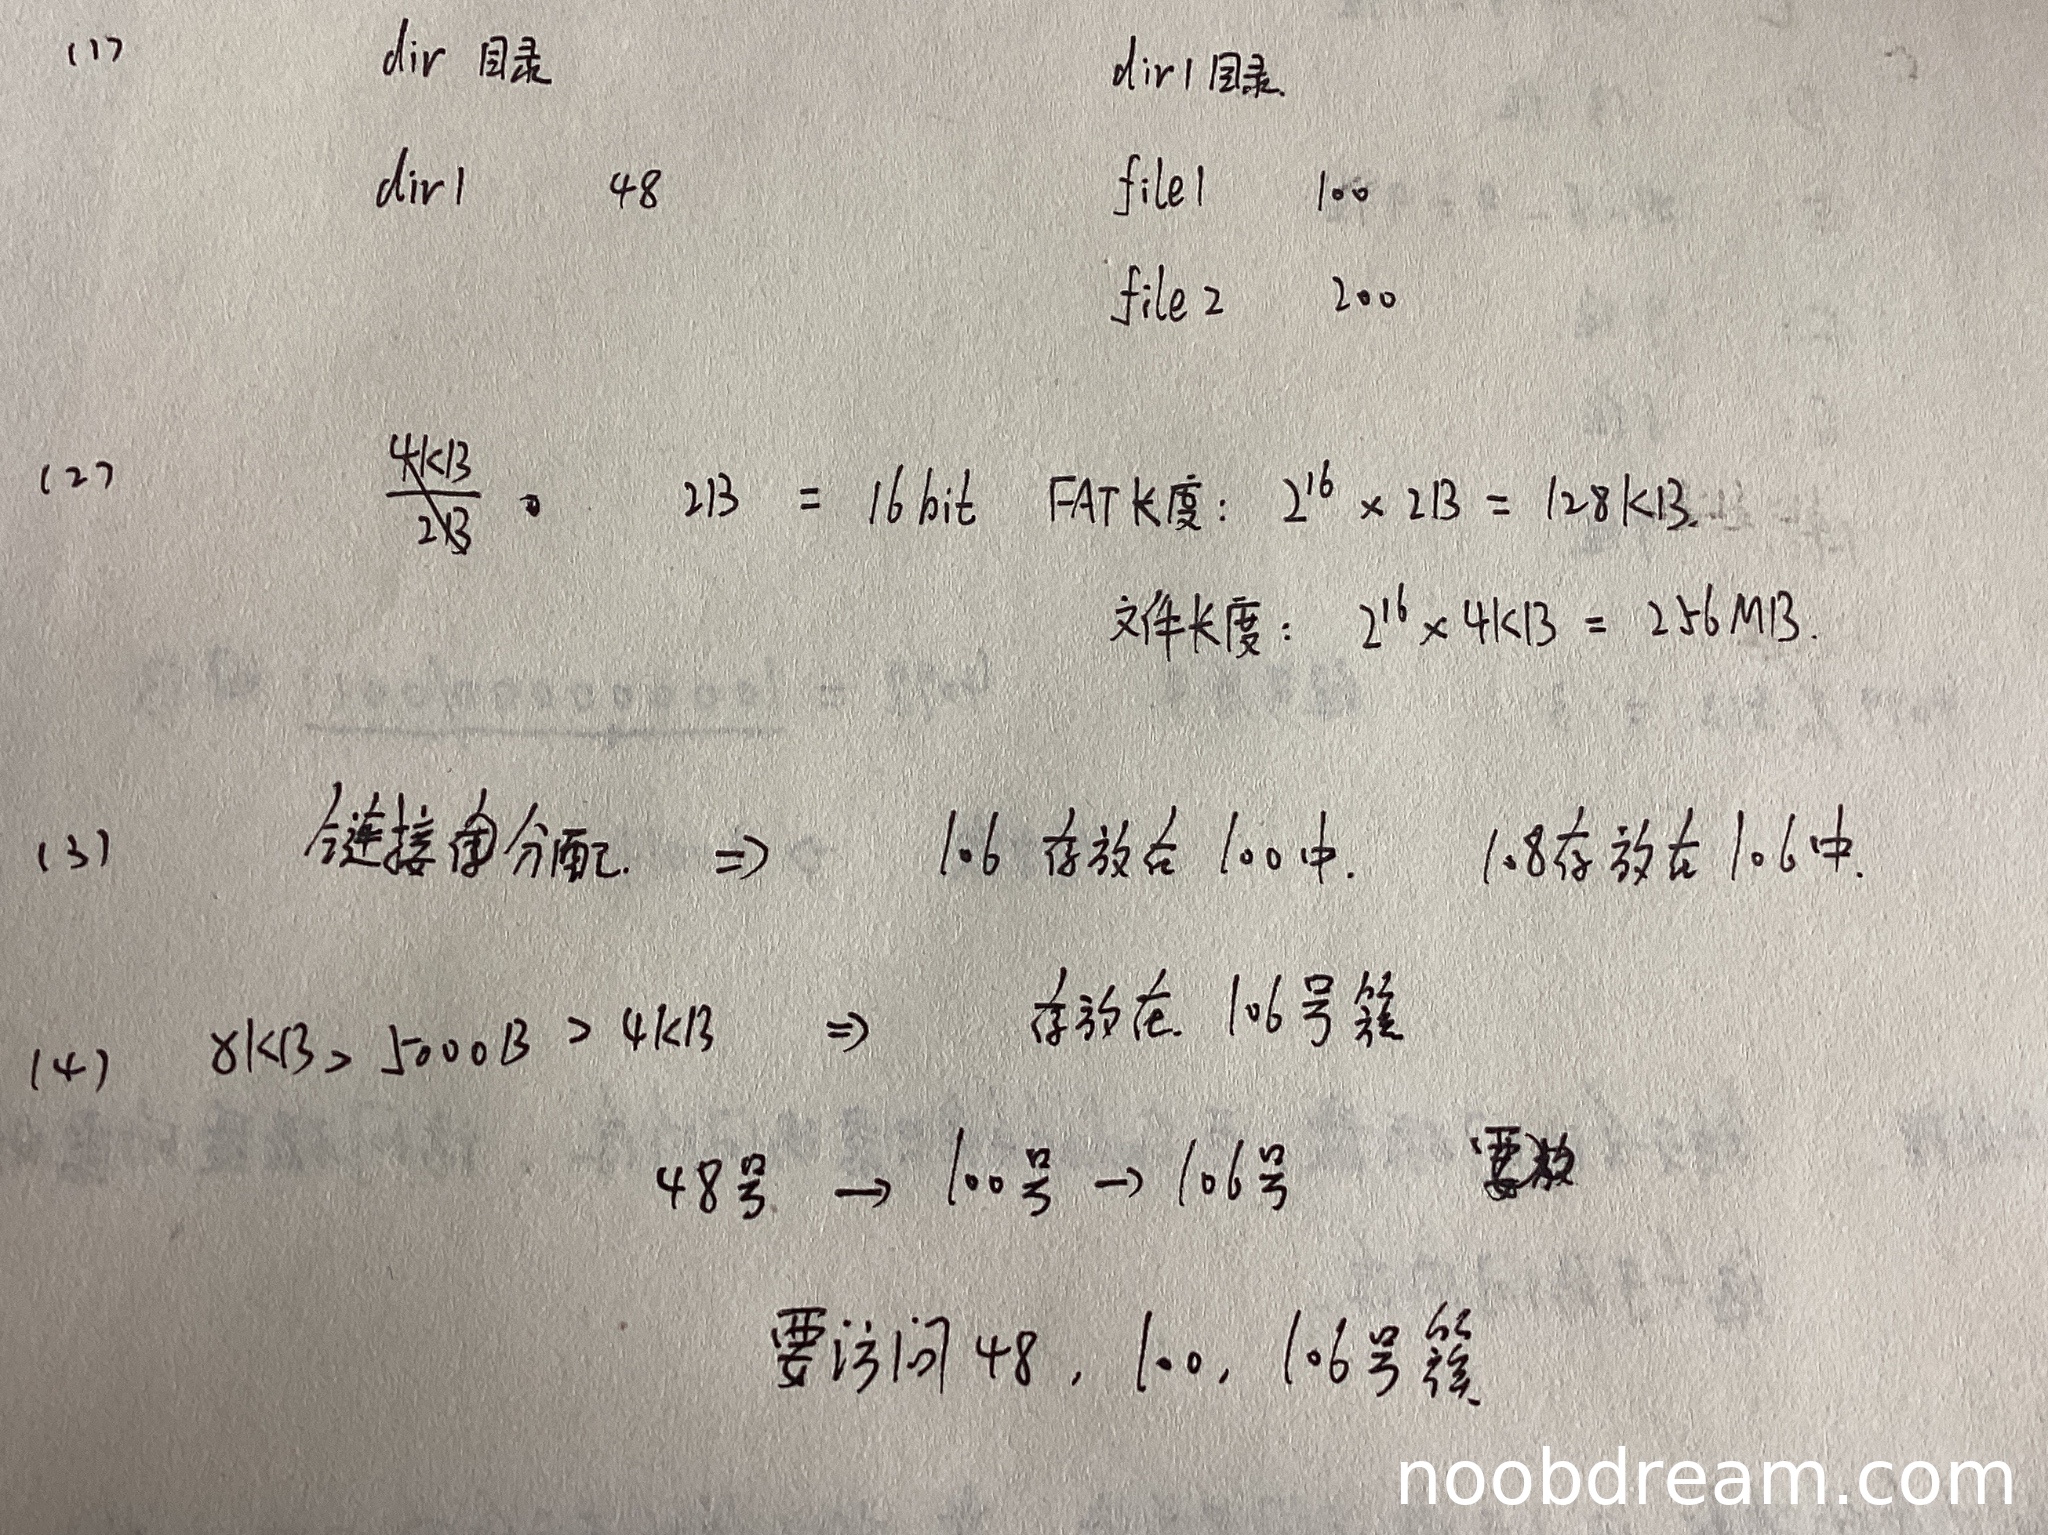 (1) dir 目录 dir1目录.
dir1 48 file1 100
file2 200
(2) 4KB/2B 2B = 16bit FAT长度: 2^16 × 2B = 128KB.
文件长度: 2^16 × 4KB = 256MB.
(3) 链接分配. ⇒ 106 存放在 100中. 108存放在 106中.
(4) 8KB > 5000B > 4KB ⇒ 存放在. 106号簇
48号 → 100号 → 106号
要访问 48, 100, 106号簇.
noobdream.com